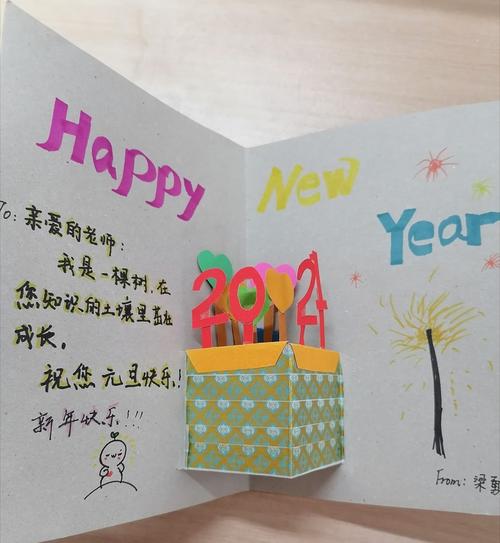 Happy
New
Year
To: 亲爱的老师:
我是一棵树,在
您知识的土壤里茁壮
成长。
祝您 元旦快乐!
新年快乐!!!
2021
From: 梁